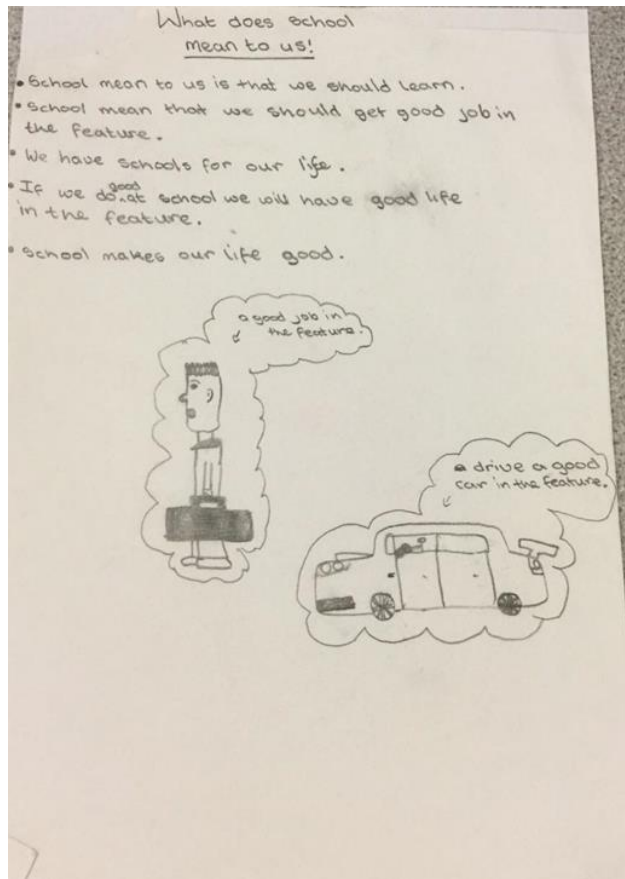 What does school
mean to us!
• School mean to us is that we should learn.
• School mean that we should get good job in
the feature.
• We have schools for our life.
• If we do good at school we will have good life
in the feature.
• School makes our life good.
a good job in
the feature.
a drive a good
car in the feature.